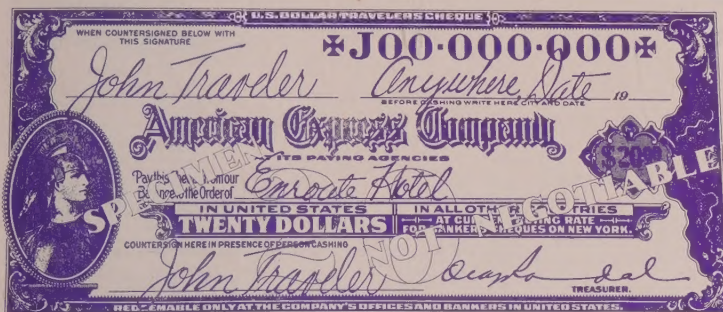 U.S. DOLLAR TRAVELERS CHEQUE
WHEN COUNTERSIGNED BELOW WITH
THIS SIGNATURE
J00·000·000
John Traveler Anywhere, Date 19
BEFORE CASHING WRITE HERE CITY AND DATE
American Express Company
AT ITS PAYING AGENCIES
Pay this Cheque from our
Balance to the Order of Enroute Hotel
$20.00
SPECIMEN
NOT NEGOTIABLE
IN UNITED STATES
TWENTY DOLLARS
IN ALL OTHER COUNTRIES
AT CURRENT BUYING RATE
FOR BANKERS CHEQUES ON NEW YORK.
COUNTERSIGN HERE IN PRESENCE OF PERSON CASHING
John Traveler
TREASURER.
REDEEMABLE ONLY AT THE COMPANY'S OFFICES AND BANKERS IN UNITED STATES.